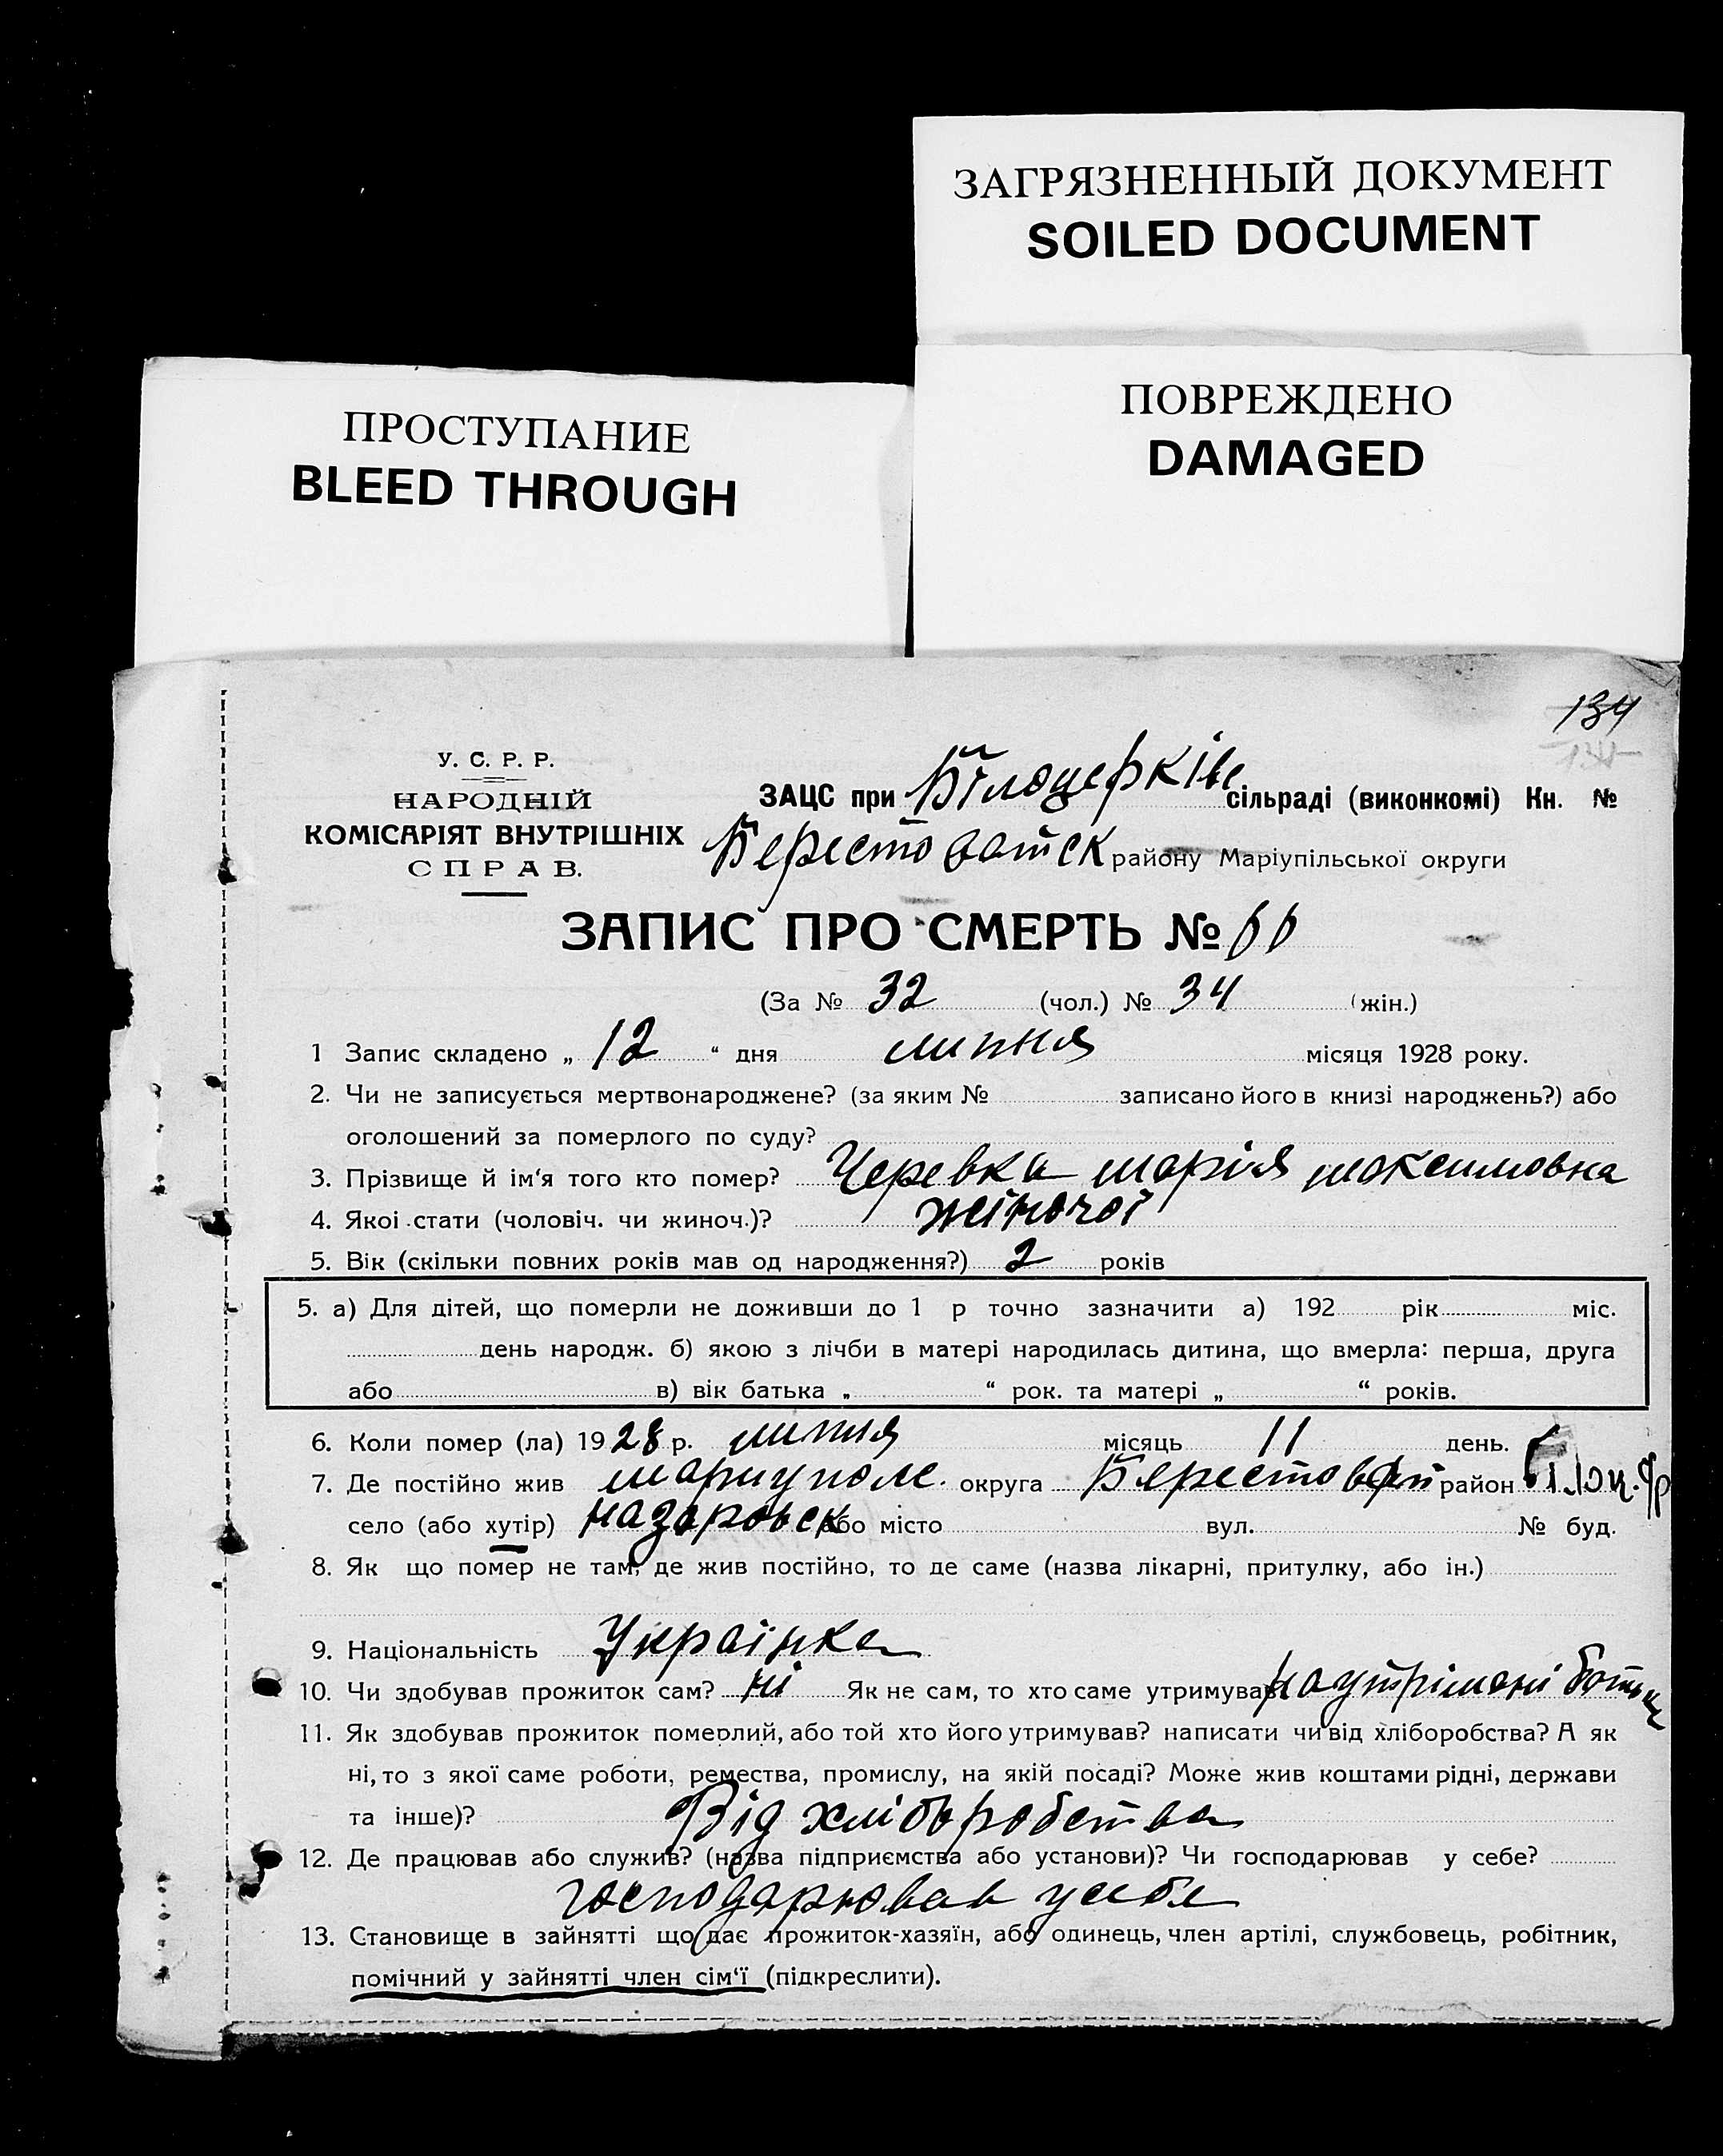 ЗАГРЯЗНЕННЫЙ ДОКУМЕНТ
SOILED DOCUMENT
ПОВРЕЖДЕНО
DAMAGED
ПРОСТУПАНИЕ
BLEED THROUGH
134
У. С. Р. Р.
НАРОДНІЙ
КОМІСАРІЯТ ВНУТРІШНІХ
СПРАВ.
ЗАЦС при Білоцерківс сільраді (виконкомі) Кн. №
Берестоватск району Маріупільської округи
ЗАПИС ПРО СМЕРТЬ № 66
(За № 32 (чол.) № 34 (жін.)
1 Запис складено „ 12 “ дня липня місяця 1928 року.
2. Чи не записується мертвонароджене? (за яким № записано його в книзі народжень?) або
оголошений за померлого по суду?
3. Прізвище й ім‘я того кто помер? Черевка Марія Максимовна
4. Якоі стати (чоловіч. чи жиноч.)? жіночої
5. Вік (скільки повних років мав од народження?) 2 років
5. а) Для дітей, що померли не доживши до 1 р точно зазначити а) 192 рік міс.
день народж. б) якою з лічби в матері народилась дитина, що вмерла: перша, друга
або в) вік батька „ “ рок. та матері „ “ років.
6. Коли помер (ла) 1928 р. липня місяць 11 день.
7. Де постійно жив Мариуполс. округа Берестоват район
село (або хутір) Назаровск або місто вул. № буд.
8. Як що помер не там, де жив постійно, то де саме (назва лікарні, притулку, або ін.)
9. Національність Українка
10. Чи здобував прожиток сам? ні Як не сам, то хто саме утримував на утрімані
11. Як здобував прожиток померлий, або той хто його утримував? написати чи від хліборобства? А як
ні, то з якої саме роботи, ремества, промислу, на якій посаді? Може жив коштами рідні, держави
та інше)? Від хліборобства
12. Де працював або служив? (назва підприємства або установи)? Чи господарював у себе?
господарював у себе
13. Становище в зайнятті що дає прожиток-хазяїн, або одинець, член артілі, службовець, робітник,
помічний у зайнятті член сім‘ї (підкреслити).